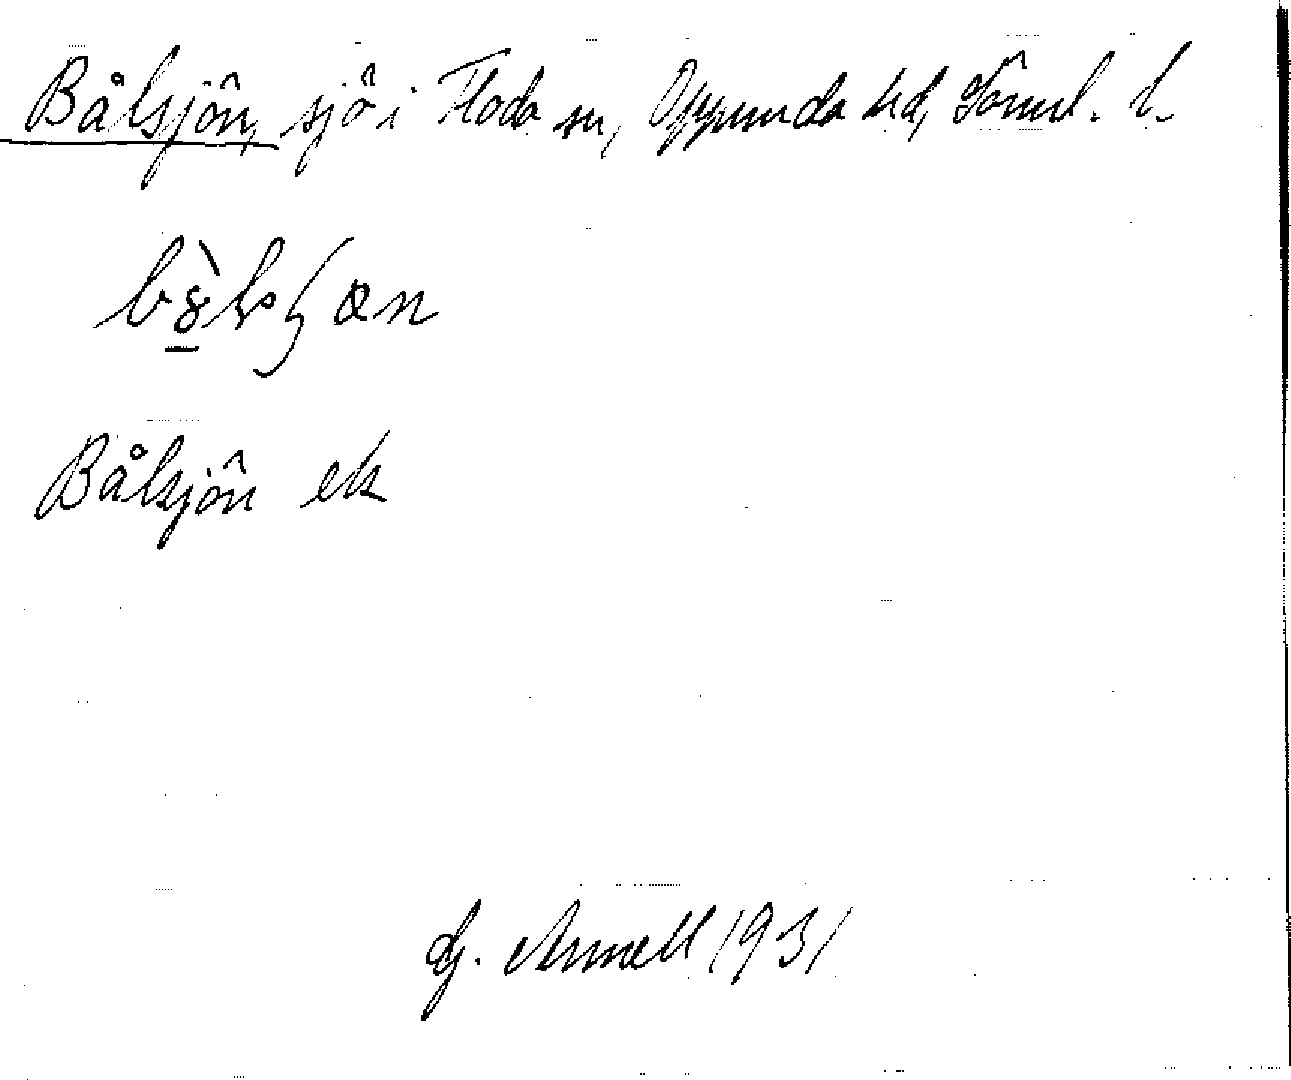 Bålsjön, sjö i Floda sn, Oppunda hd, Sörml. l.
Bålsjön ek
G. Arnell 1931